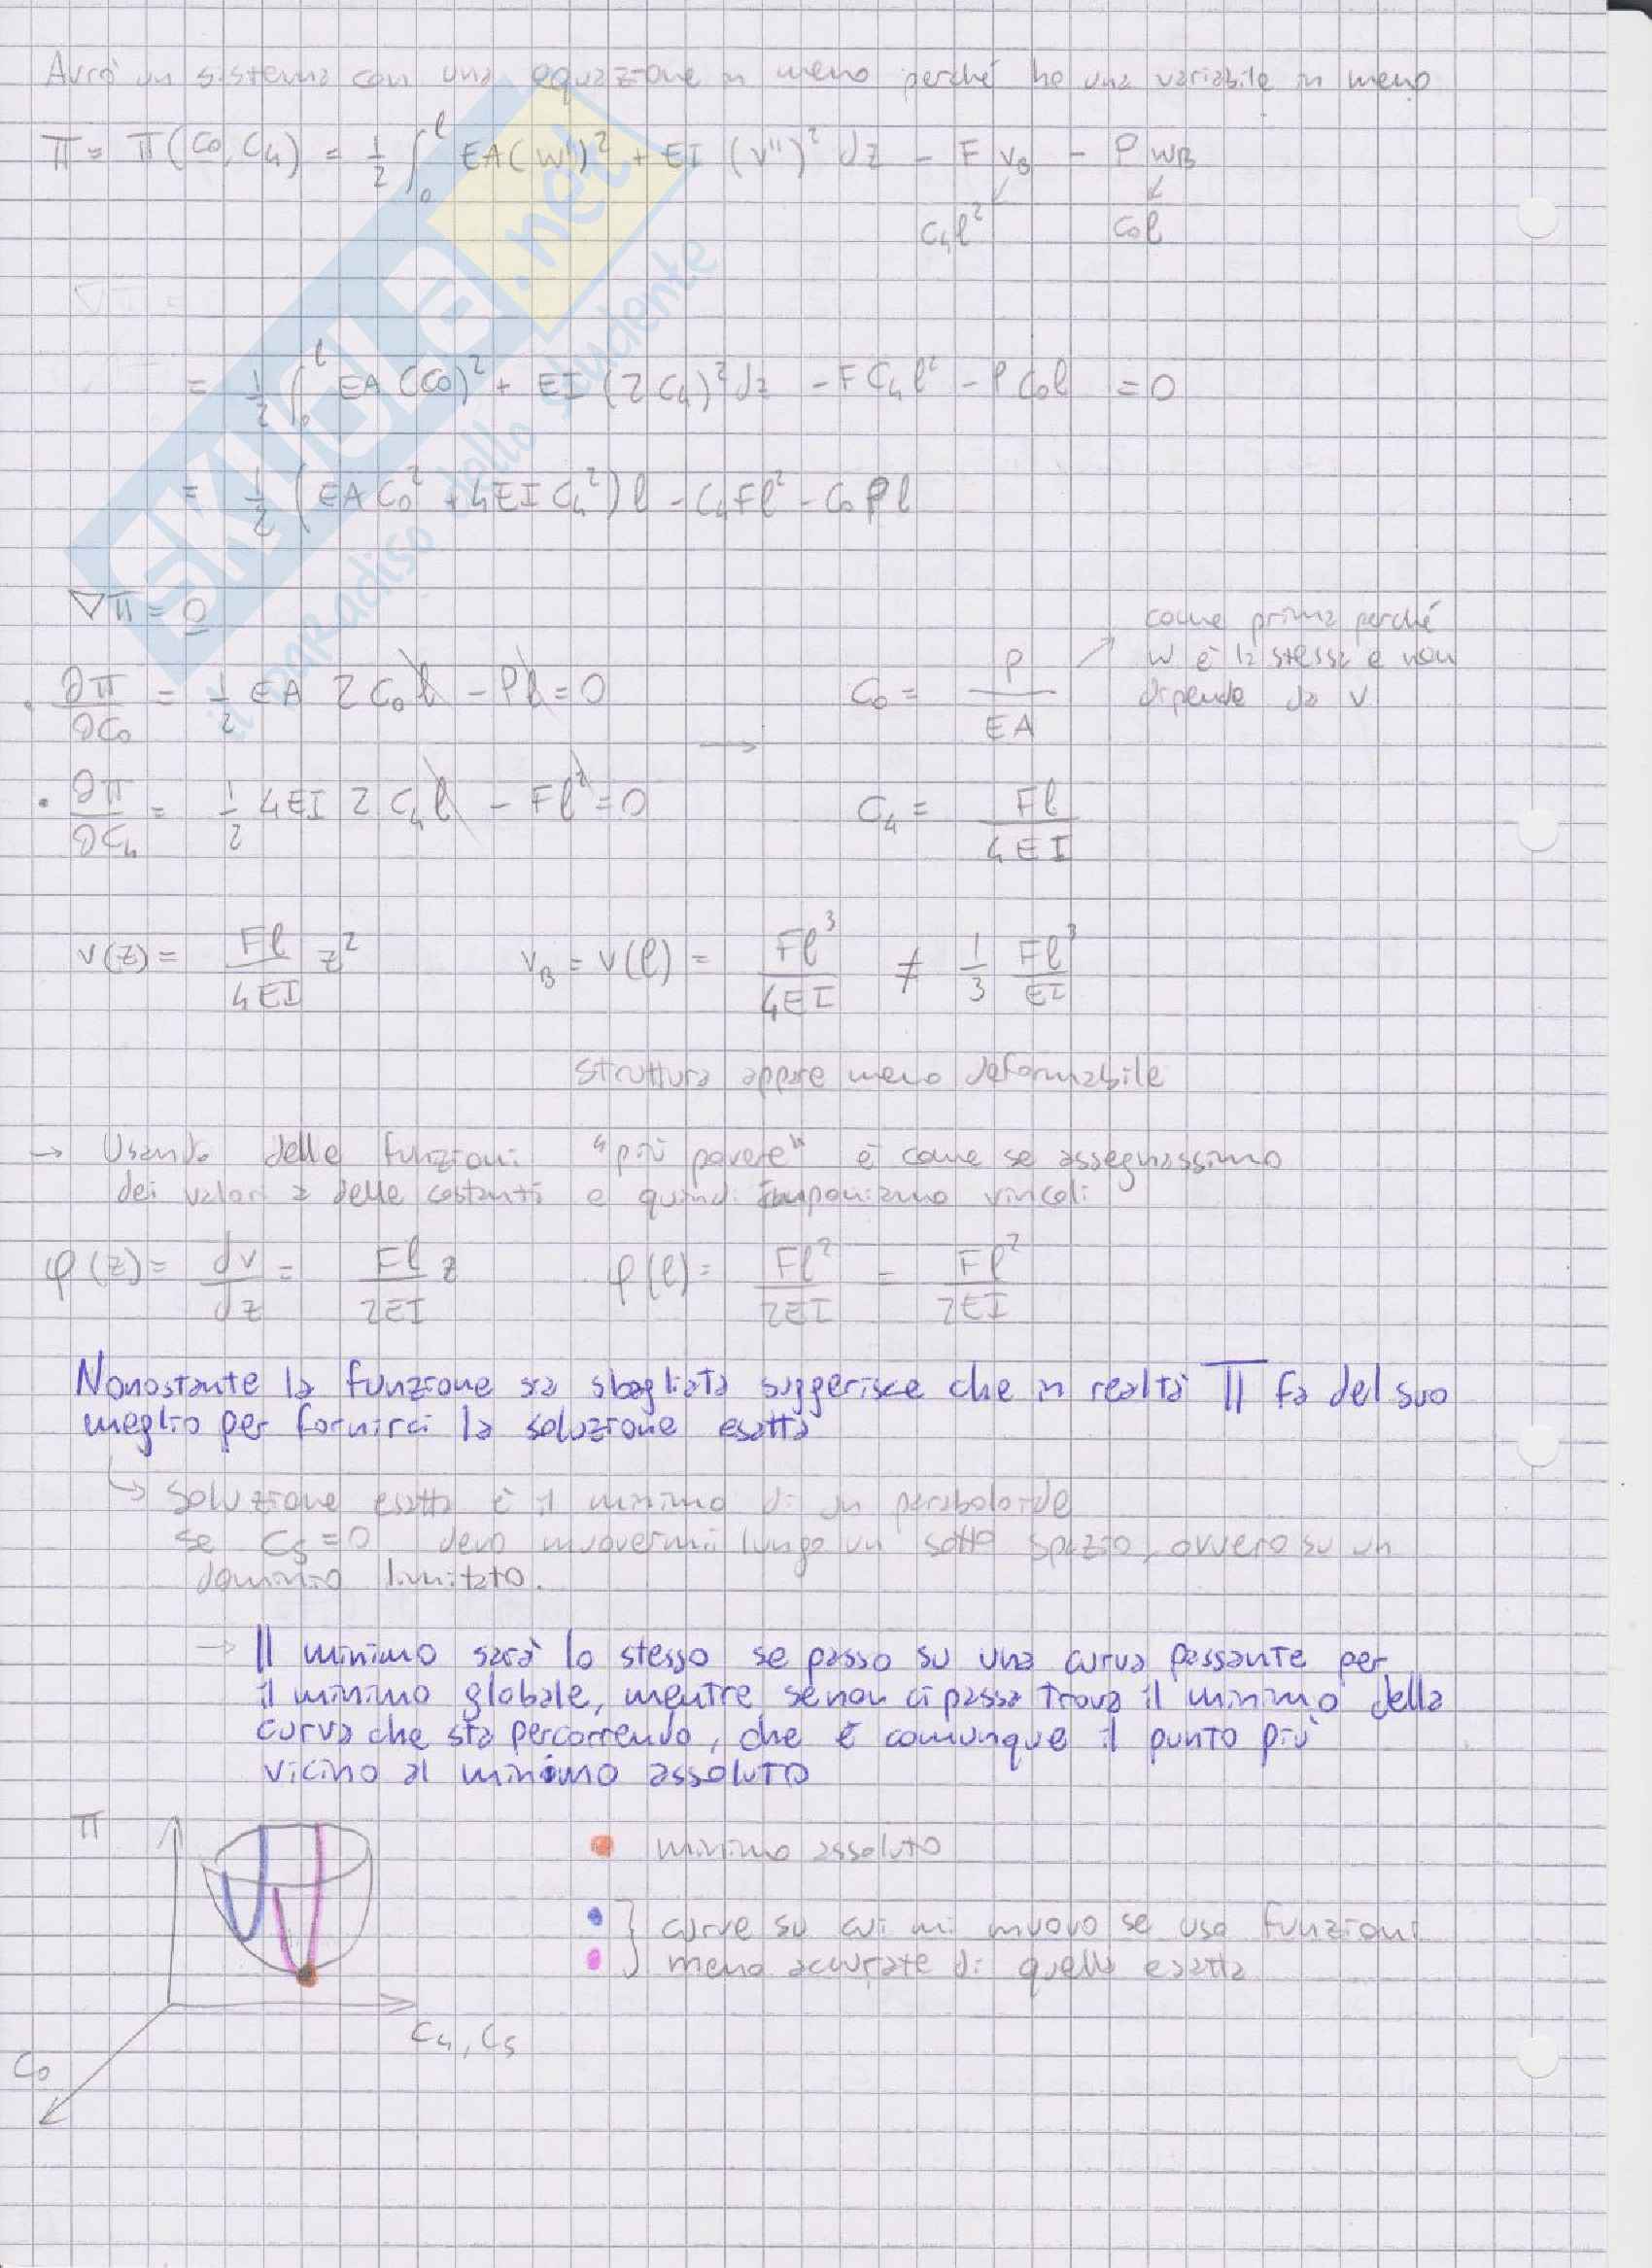 Avrò un sistema con una equazione in meno perché ho una variabile in meno
Π = Π(C0, C4) = 1/2 ∫₀ˡ EA(w')² + EI (v'')² dz - F vB - P wB
C4l² C0l
∇Π =
= 1/2 ∫₀ˡ EA(C0)² + EI(2C4)² dz - FC4l² - PC0l = 0
= 1/2 (EAC0² + 4EIC4²)l - C4Fl² - C0Pl
∇Π = 0
come prima perché
w è la stessa e non
dipende da v
• ∂Π/∂C0 = 1/2 EA 2C0l - Pl = 0 → C0 = P/EA
• ∂Π/∂C4 = 1/2 4EI 2C4l - Fl² = 0 C4 = Fl/4EI
v(z) = Fl/4EI z² vB = v(l) = Fl³/4EI ≠ 1/3 Fl³/EI
struttura appare meno deformabile
→ Usando delle funzioni "più povere" è come se assegnassimo
dei valori a delle costanti e quindi imponiamo vincoli
φ(z) = dv/dz = Fl/2EI z φ(l) = Fl²/2EI = Fl²/2EI
Nonostante la funzione sia sbagliata suggerisce che in realtà Π fa del suo
meglio per fornirci la soluzione esatta
↳ soluzione esatta è il minimo di un paraboloide
se C5=0 devo muovermi lungo un sotto spazio, ovvero su un
dominio limitato.
→ Il minimo sarà lo stesso se passo su una curva passante per
il minimo globale, mentre se non ci passa trova il minimo della
curva che sta percorrendo, che è comunque il punto più
vicino al minimo assoluto
Π
minimo assoluto
curve su cui mi muovo se uso funzioni
meno accurate di quella esatta
C4, C5
C0
SKUOLA.net
il paradiso dello studente